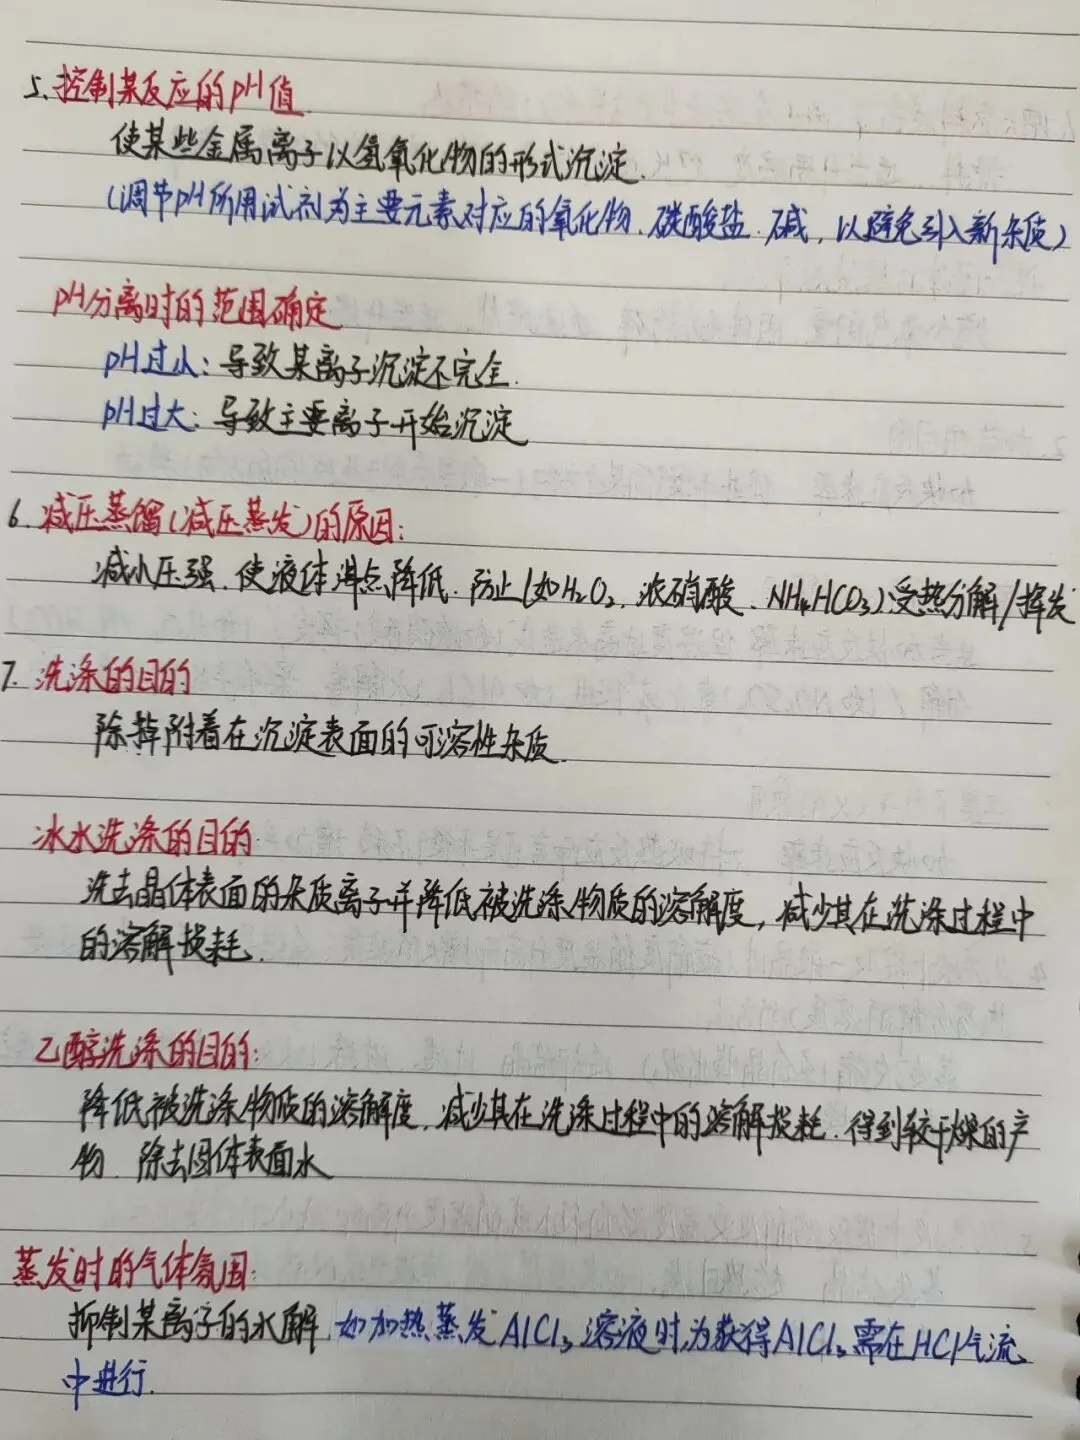 5. 控制某反应的pH值
使某些金属离子以氢氧化物的形式沉淀.
(调节pH所用试剂为主要元素对应的氧化物、碳酸盐、碱, 以避免引入新杂质)
pH分离时的范围确定
pH过小: 导致某离子沉淀不完全.
pH过大: 导致主要离子开始沉淀
6. 减压蒸馏(减压蒸发)的原因:
减小压强, 使液体沸点降低. 防止(如H₂O₂、浓硝酸、NH₄HCO₃)受热分解/挥发
7. 洗涤的目的
除掉附着在沉淀表面的可溶性杂质.
冰水洗涤的目的
洗去晶体表面的杂质离子并降低被洗涤物质的溶解度, 减少其在洗涤过程中
的溶解损耗.
乙醇洗涤的目的:
降低被洗涤物质的溶解度, 减少其在洗涤过程中的溶解损耗. 得到较干燥的产
物. 除去固体表面水
蒸发时的气体氛围:
抑制某离子的水解 如加热蒸发AlCl₃溶液时,为获得AlCl₃需在HCl气流
中进行.